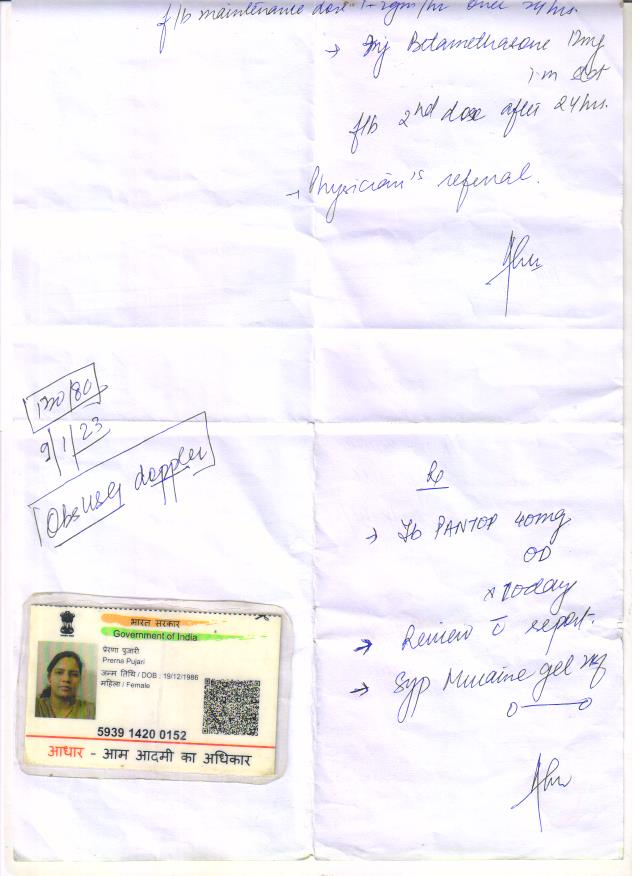 f/b maintenance dose 1-2gm/hr over 24hrs.
→ Inj Betamethasone 12mg
i.m stat
f/b 2nd dose after 24hrs.
→ Physician's referral.
120/80
9/1/23
Obs USG doppler
Rx
→ Tb PANTOP 40mg
OD
x 10day
→ Review c̄ report.
→ Syp Mucaine gel
0——0
भारत सरकार
Government of India
प्रेरणा पुजारी
Prerna Pujari
जन्म तिथि / DOB : 19/12/1986
महिला / Female
5939 1420 0152
आधार - आम आदमी का अधिकार